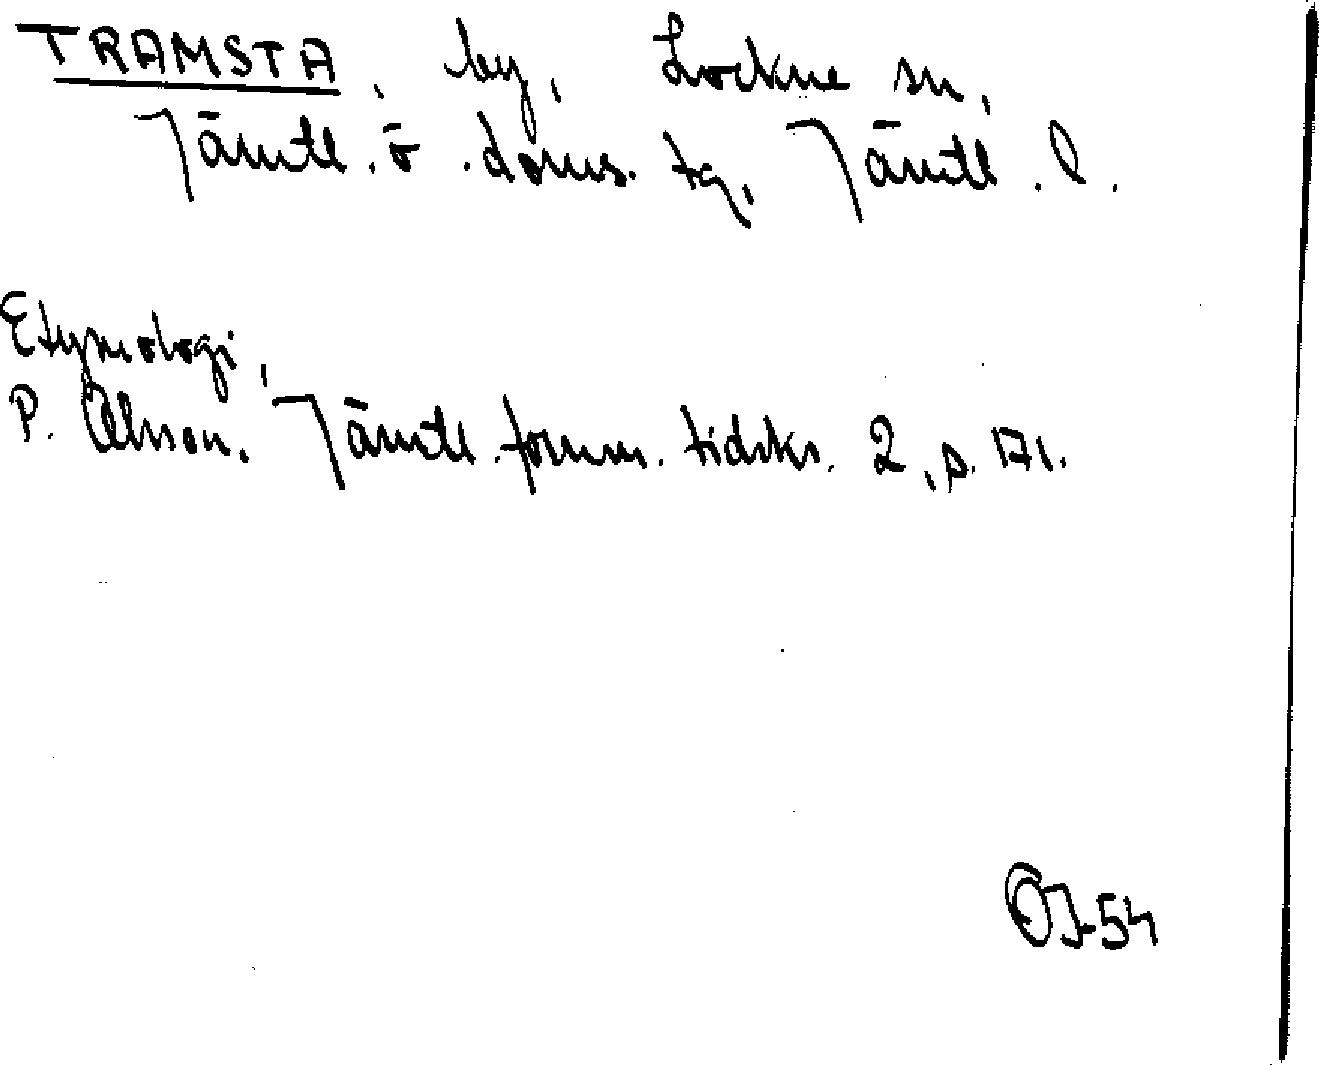 TRAMSTA, by, Lockne sn,
Jämtl. ö. doms. tg, Jämtl. l.
Etymologi,
P. Olsson. Jämtl. fornm. tidskr. 2, s. 171.
ÖJ-54